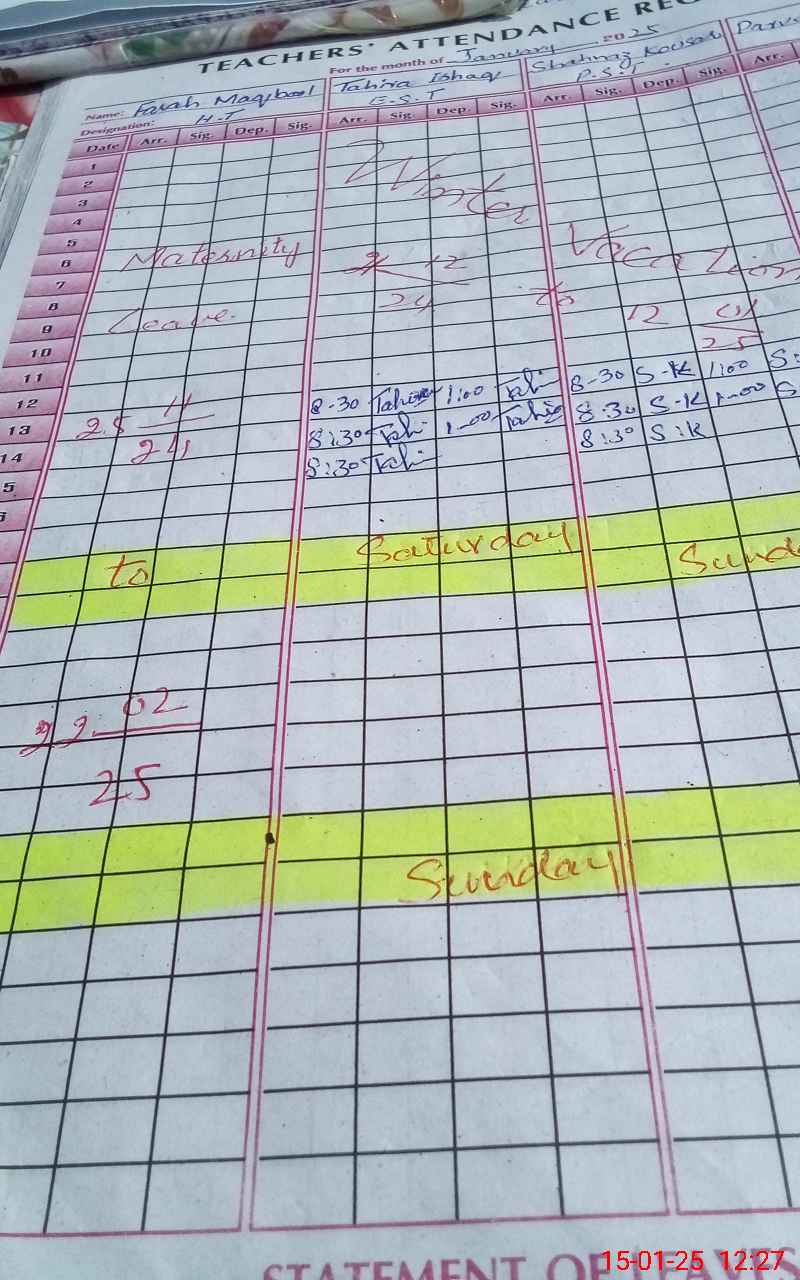 TEACHERS' ATTENDANCE RE
For the month of January 2025
Name: Farah Maqbool Tahira Ishaq Shahnaz Kousar Parv
Designation: H.T E.S.T P.S.T
Date Arr. Sig. Dep. Sig. Arr. Sig. Dep. Sig. Arr. Sig. Dep. Sig. Arr.
1
2
3
4
5
6
7
8
9
10
11
12
13
14
5
6
Winter
Vacation
12
24
to
12 01
25
Maternity
Leave.
25 11
24
to
22 02
25
8-30 Tahira 1:00 Tahi 8-30 S-K 1:00 S
8:30 Tahi 1-00 Tahira 8:30 S-K 1-00 S
8:30 Tahi 8:30 S:K
Saturday Sunda
Sunday
STATEMENT OF
15-01-25 12:27